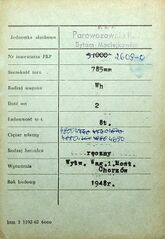 Jednostka służbowa
Parowozownia
Bytom-Maciejków
Nr inwentarza PKP 2609-0
Szerokość toru 785mm
Rodzaj wagonu Wh
Ilość osi 2
Ładowność w t. 8t.
Ciężar własny
Rodzaj hamulca ręczny
Wytwórnia Wytw. Wag. i Most. Chorzów
Rok budowy 1948r.